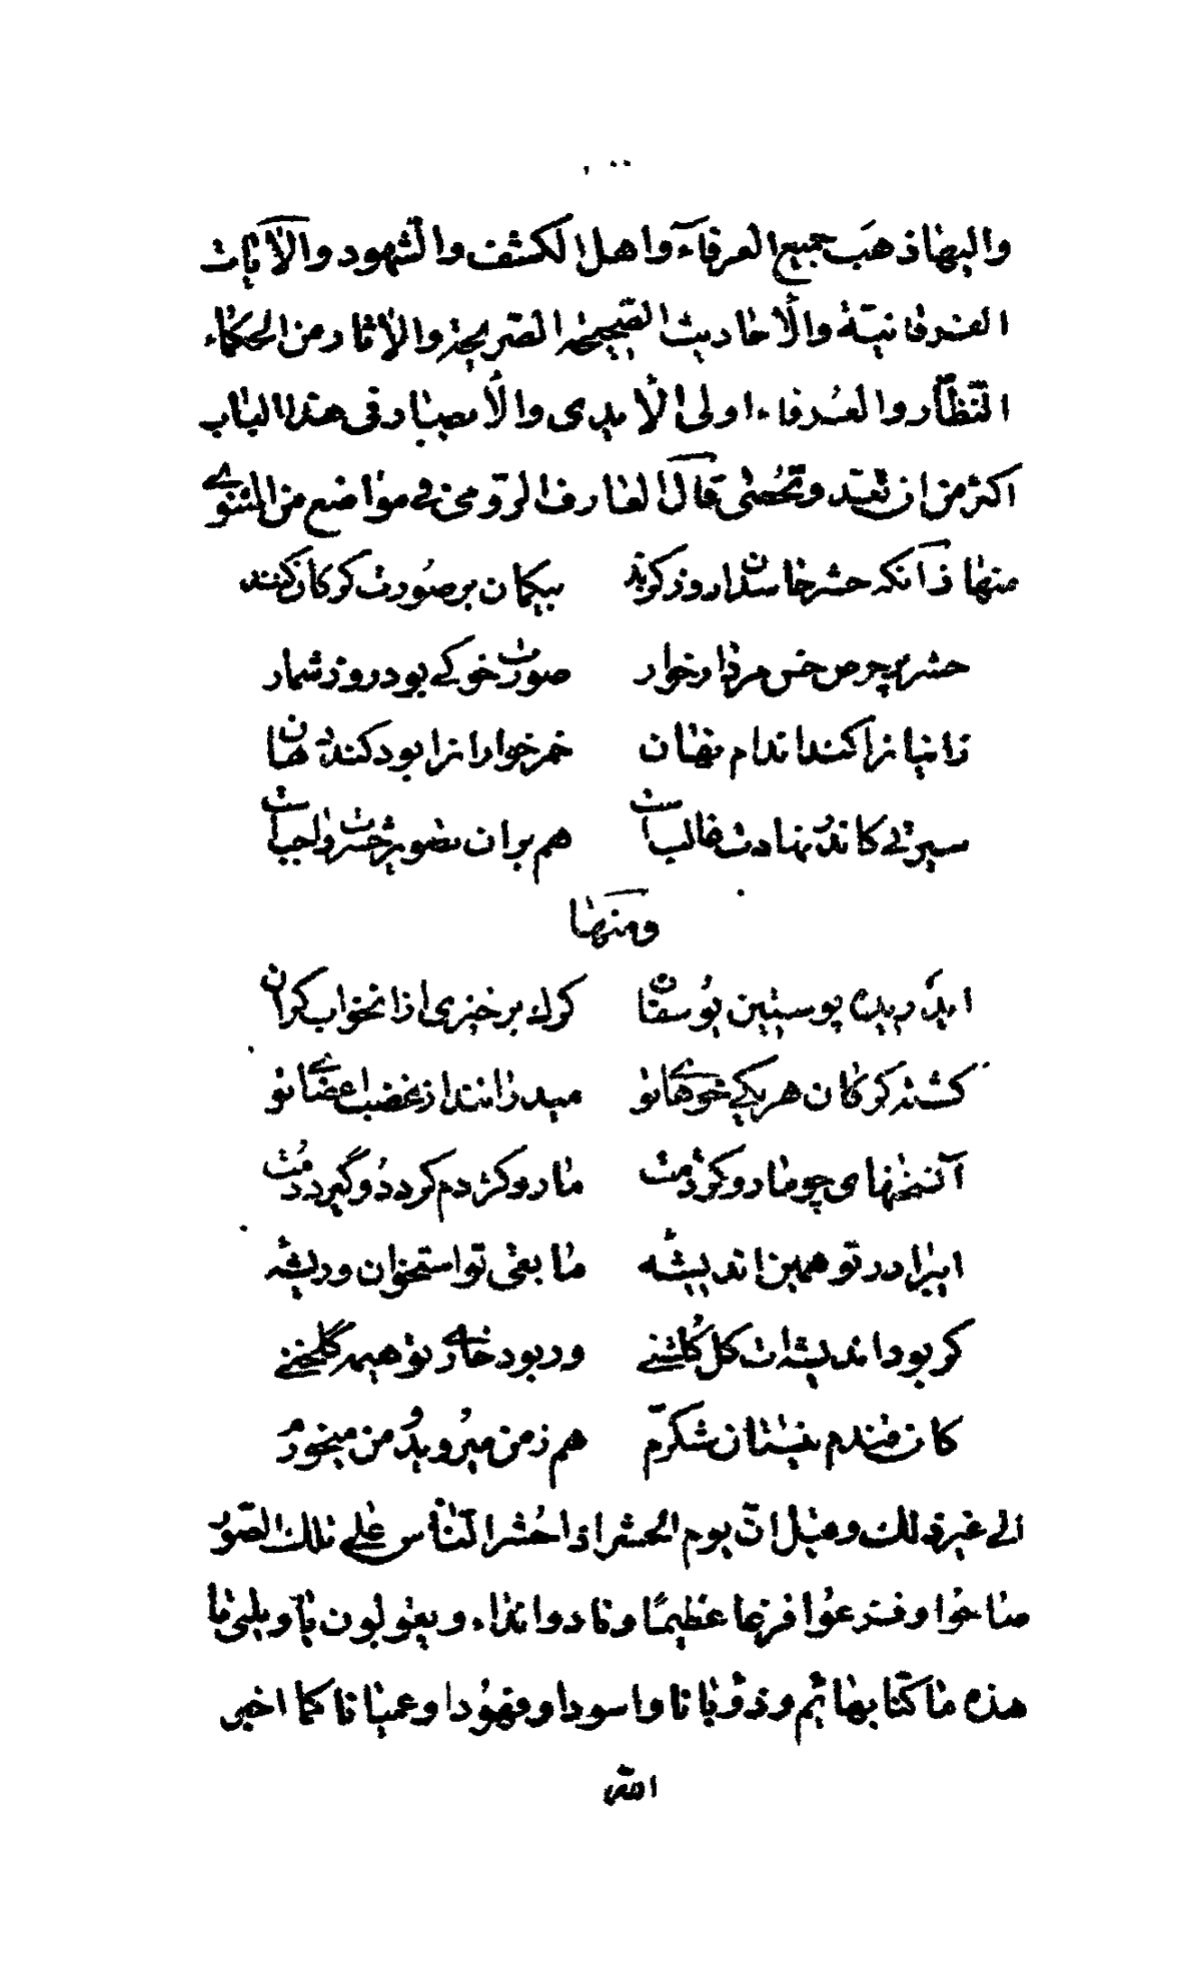 واليها ذهب جميع العرفاء واهل الكشف والشهود والآيات
الفرقانية والأحاديث الصحيحة الصريحة والاثار من الحكماء
النظّار والعُرفاء اولى الأيدى والأبصار فى هذا الباب
اكثر من ان تعد وتحُصى قال العارف الرومى فى مواضع من المثنوى
منها زآنكه حشر حاسدان روز گزند بيگمان بر صُورت گرگان كنند
حشر پر حرص خس مردار خوار صورت خوكى بود روز شمار
زانيانرا كند اندام نهان خمر خوارانرا بود كند دهان
سيرتى كاندر نهادت غالبست هم بران تصوير حشرت واجبست
ومنها
ايدريده پوستين يُوسفان گرك برخيزى ازانخواب گران
گشته گرگان هريكى خوهاى تو ميدرانند از غضب اعضاى تو
آنسخنهاى چو مار و كژدمت مار و كژدم گردد و گيرد دُمت
ايبرادر تو همين انديشه مابقى تو استخوان وريشه
گر بود انديشه ات گل گُلشنى ور بود خارى تو هيمه گلخنى
كان قندم نيستان شكرّم هم ز من ميرُويدُ و من ميخورم
الى غير ذلك وقيل انّ يوم الحشر اذا حُشر النّاس على تلك الصّور
صاحُوا وفزعُوا فزعا عظيمًا ونادوا نداء ويقولون ياويلى نا
هذه ما كنّا بهائم وذؤبانا واسودا وفهُودا وعميانا كما اخبر
اللّه